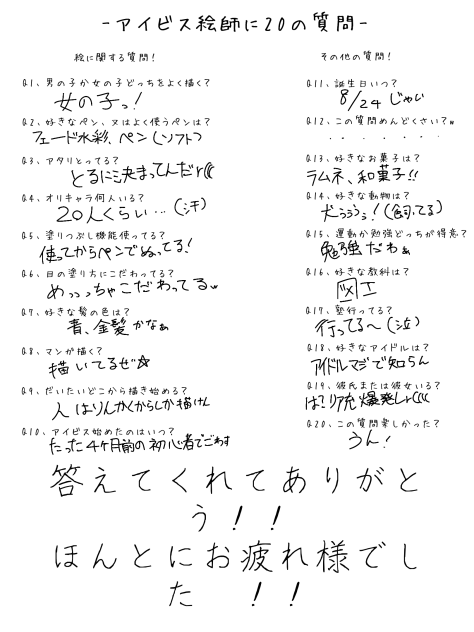 -アイビス絵師に20の質問-
絵に関する質問!
Q1、男の子か女の子どっちをよく描く?
女の子っ!
Q2、好きなペン、又はよく使うペンは?
フェード水彩、ペン(ソフト)
Q3、アタリとってる?
とるに決まってんだr(((
Q4、オリキャラ何人いる?
20人くらい…(汗)
Q5、塗りつぶし機能使ってる?
使ってからペンでぬってる!
Q6、目の塗り方にこだわってる?
めっっっちゃこだわってるw
Q7、好きな髪の色は?
青、金髪かなぁ
Q8、マンガ描く?
描いてるぜ☆
Q9、だいたいどこから描き始める?
人はりんかくからしか描けん
Q10、アイビス始めたのはいつ?
たった4ヶ月前の初心者でごわす
その他の質問!
Q11、誕生日いつ?
8/24じゃい
Q12、この質問めんどくさい?w
・・・・・・
Q13、好きなお菓子は?
ラムネ、和菓子!!
Q14、好きな動物は?
犬ぅぅぅ!(飼ってる)
Q15、運動か勉強どっちが得意?
勉強だわぁ
Q16、好きな教科は?
図工
Q17、塾行ってる?
行ってる〜(泣)
Q18、好きなアイドルは?
アイドルマジで知らん
Q19、彼氏または彼女いる?
は?リア充爆発しr(((
Q20、この質問楽しかった?
うん!
答えてくれてありがと
う!!
ほんとにお疲れ様でし
た!!